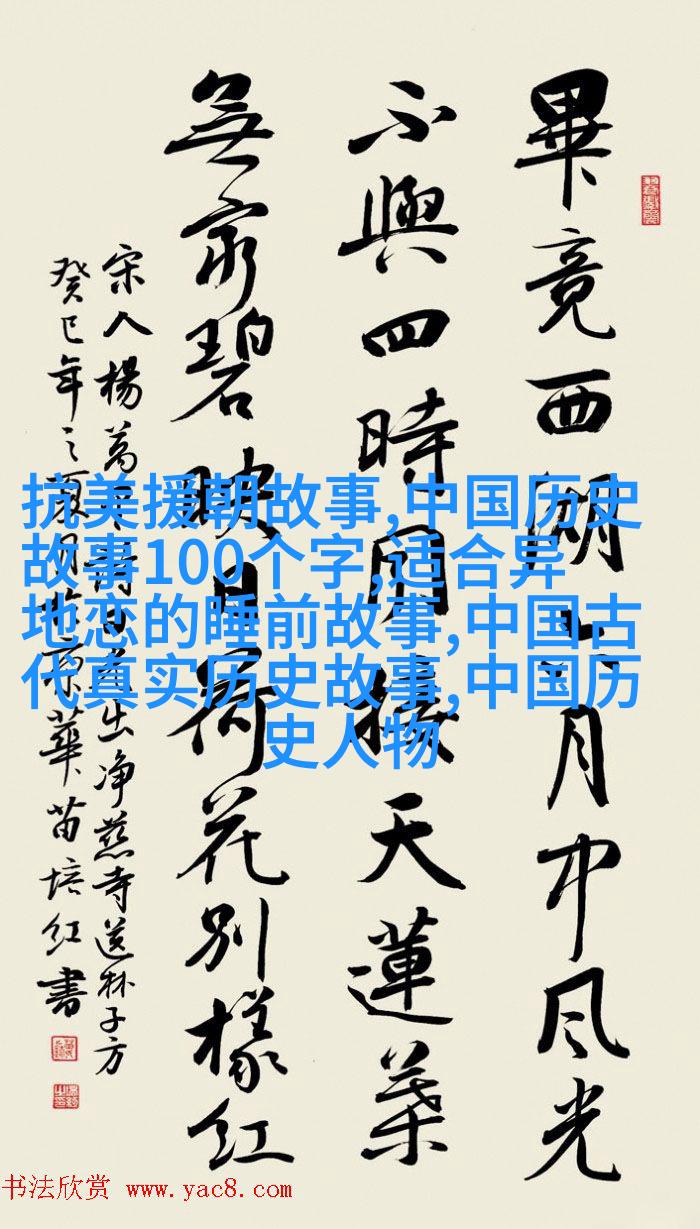 畢竟西湖六月中风光
不與四時同接天蓮葉
無穷碧映日荷花别樣红
宋人楊萬里詩曉出净慈寺送林子方
癸巳年之夏月於京華苗培红書
抗美援朝故事,中国历史
故事100个字,适合异
地恋的睡前故事,中国古
代真实历史故事,中国历
史人物
书法欣赏 www.yac8.com